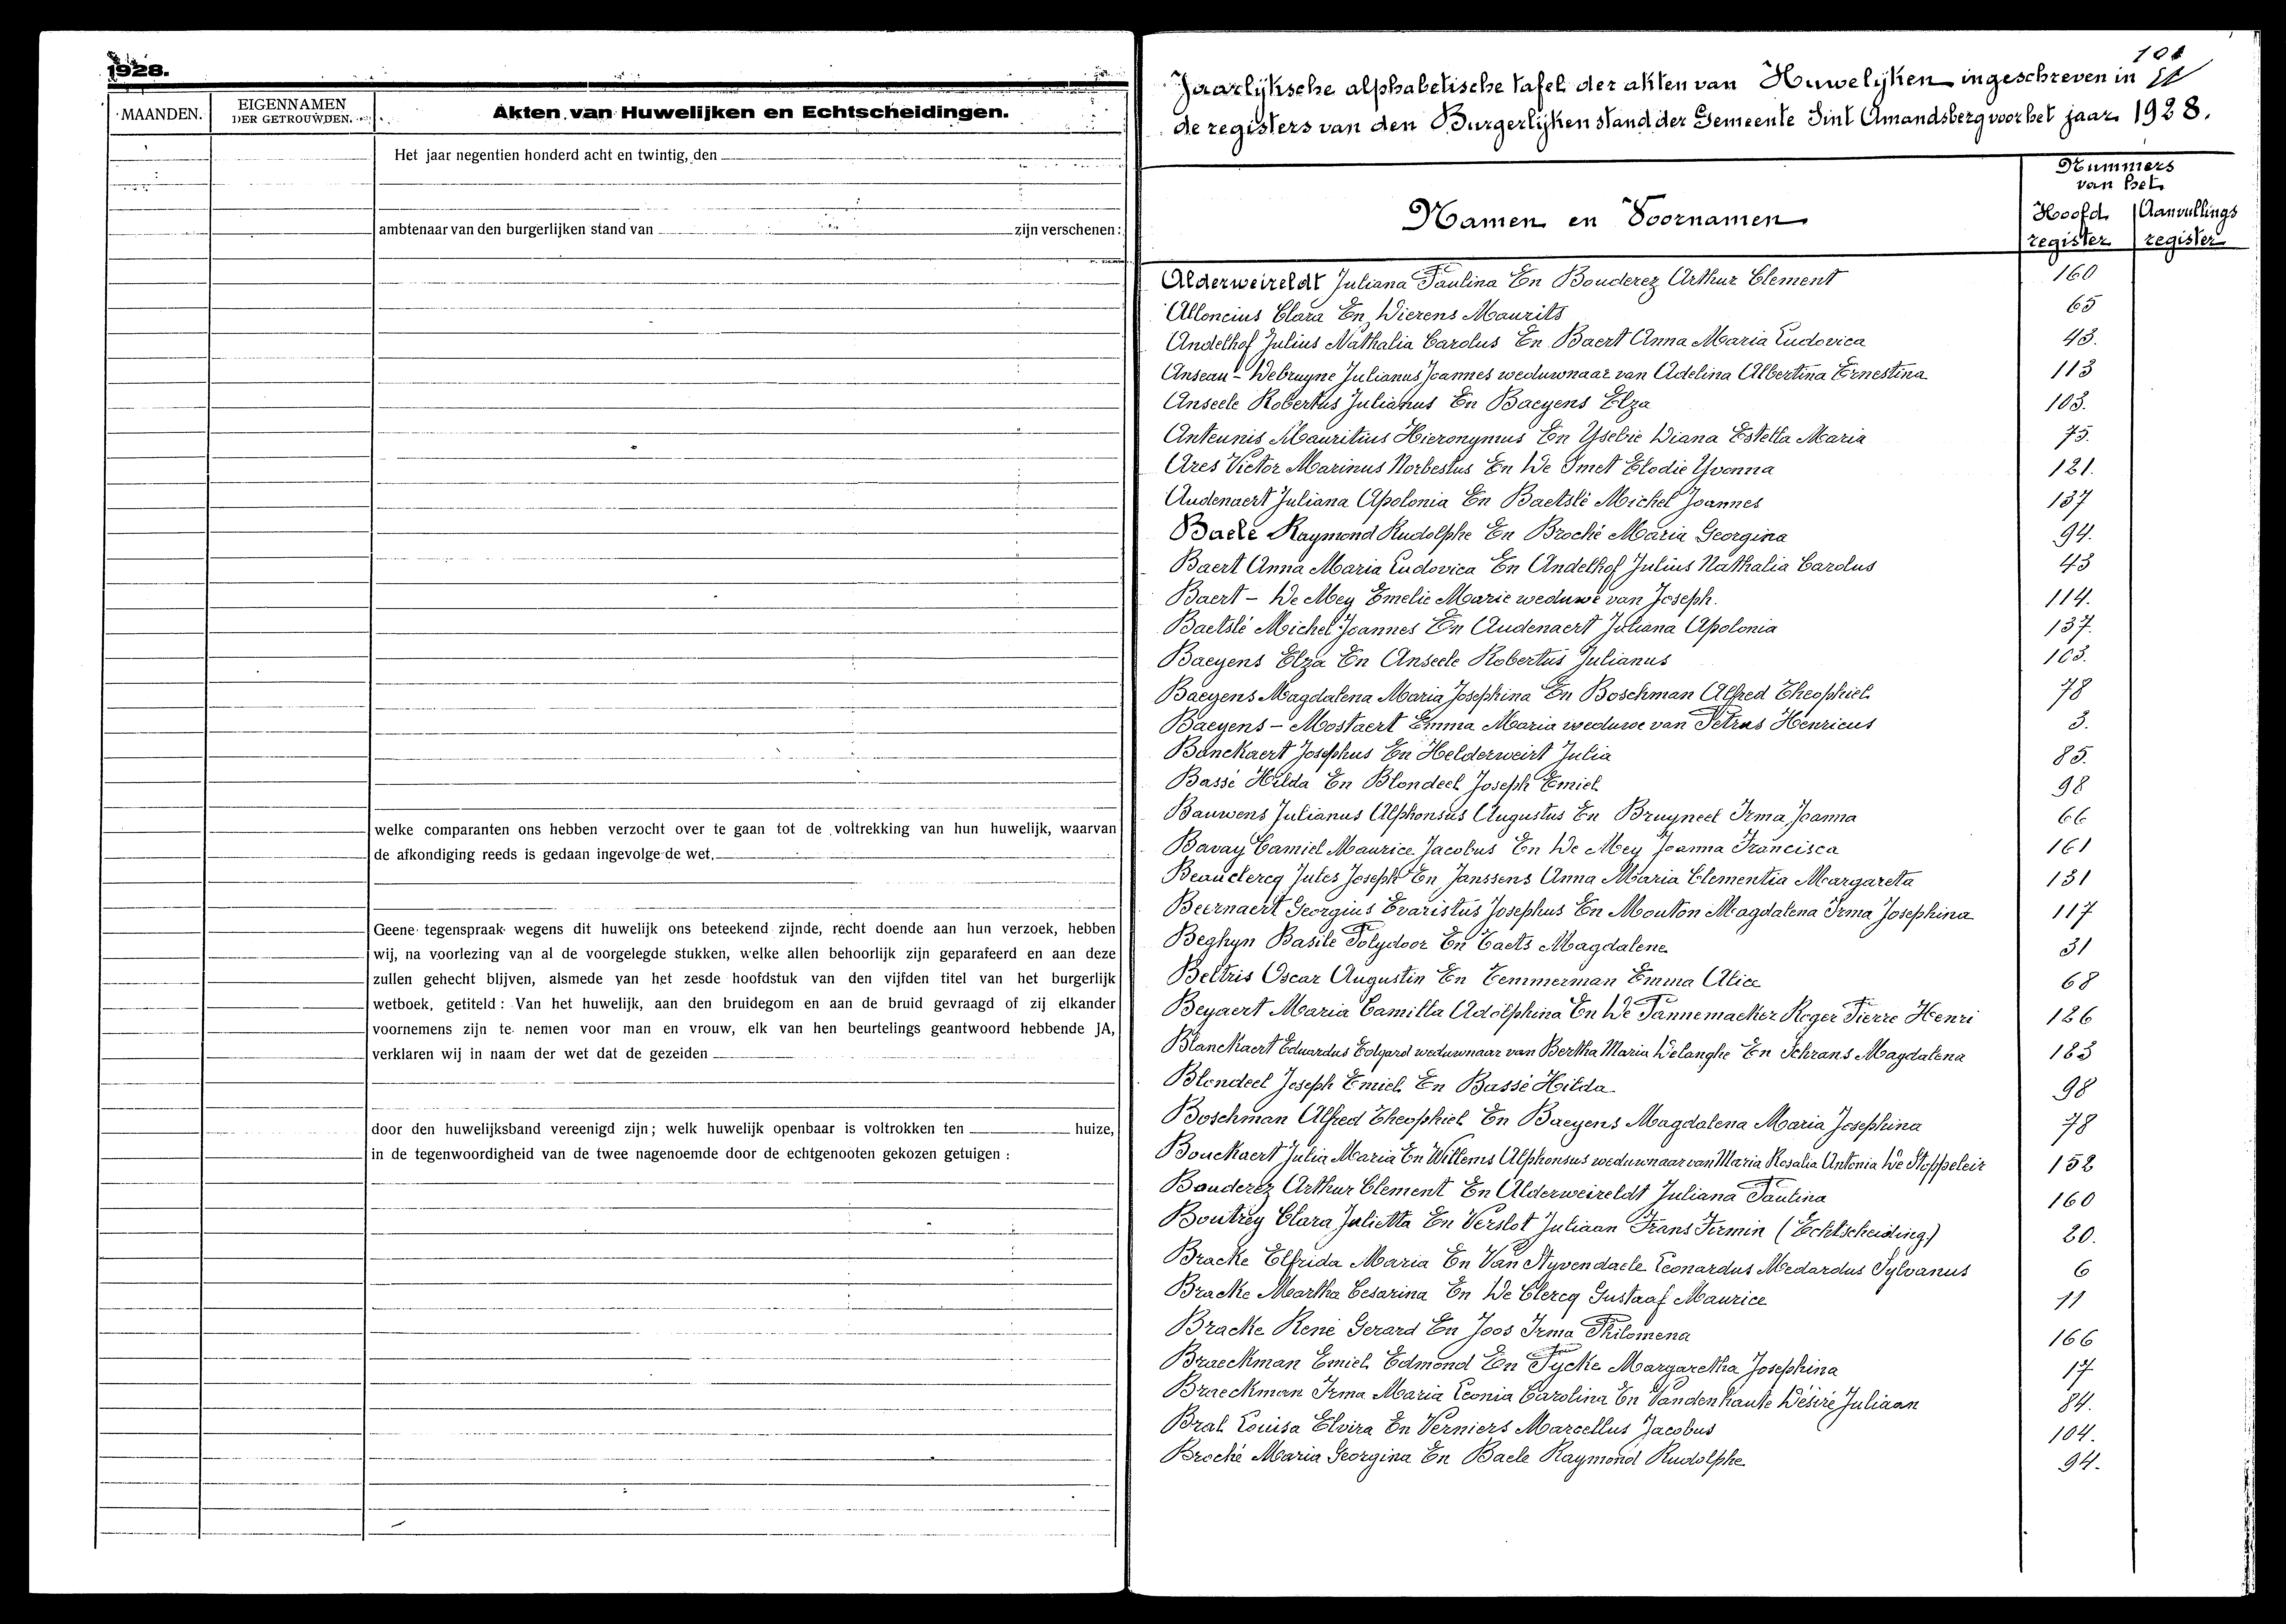 1928.
MAANDEN.
EIGENNAMEN
DER GETROUWDEN.
Akten van Huwelijken en Echtscheidingen.
Het jaar negentien honderd acht en twintig, den
ambtenaar van den burgerlijken stand van zijn verschenen :
welke comparanten ons hebben verzocht over te gaan tot de voltrekking van hun huwelijk, waarvan
de afkondiging reeds is gedaan ingevolge de wet.
Geene tegenspraak wegens dit huwelijk ons beteekend zijnde, recht doende aan hun verzoek, hebben
wij, na voorlezing van al de voorgelegde stukken, welke allen behoorlijk zijn geparafeerd en aan deze
zullen gehecht blijven, alsmede van het zesde hoofdstuk van den vijfden titel van het burgerlijk
wetboek, getiteld : Van het huwelijk, aan den bruidegom en aan de bruid gevraagd of zij elkander
voornemens zijn te nemen voor man en vrouw, elk van hen beurtelings geantwoord hebbende JA,
verklaren wij in naam der wet dat de gezeiden
door den huwelijksband vereenigd zijn ; welk huwelijk openbaar is voltrokken ten huize,
in de tegenwoordigheid van de twee nagenoemde door de echtgenooten gekozen getuigen :
Jaarlijksche alphabetische tafel der akten van Huwelijken ingeschreven in
de registers van den Burgerlijken stand der Gemeente Sint Amandsberg voor het jaar 1928.
Namen en Voornamen
Nummers
van het
Hoofd register
Aanvullings register
Alderweireldt Juliana Paulina En Bouderez Arthur Clement 160
Alloncius Clara En Dierens Maurits 65
Andelhof Julius Nathalia Carolus En Baert Anna Maria Ludovica 43.
Anseau - Debruyne Julianus Joannes weduwnaar van Adelina Albertina Ernestina 113
Anseele Robertus Julianus En Baeyens Elza 103.
Anteunis Mauritius Hieronymus En Ysebie Diana Estella Maria 75.
Ares Victor Marinus Norbestus En De Smet Elodie Yvonna 121.
Audenaert Juliana Apolonia En Baetslé Michel Joannes 137
Baele Raymond Rudolphe En Broché Maria Georgina 94.
Baert Anna Maria Ludovica En Andelhof Julius Nathalia Carolus 43
Baert - De Mey Emelie Marie weduwe van Joseph. 114.
Baetslé Michel Joannes En Audenaert Juliana Apolonia 137.
Baeyens Elza En Anseele Robertus Julianus 103.
Baeyens Magdalena Maria Josephina En Boschman Alfred Theophiel 78
Baeyens - Mostaert Emma Maria weduwe van Petrus Henricus 3.
Banckaert Josephus En Helderweirt Julia 85.
Bassé Hilda En Blondeel Joseph Emiel 98
Bauwens Julianus Alphonsus Augustus En Bruyneel Irma Joanna 66
Bavay Camiel Maurice Jacobus En De Mey Joanna Francisca 161
Beauclercq Jules Joseph En Janssens Anna Maria Clementia Margareta 131
Beernaert Georgius Evaristus Josephus En Mouton Magdalena Irma Josephina 117
Beghyn Basile Polydoor En Taets Magdalene 31
Beltris Oscar Augustin En Temmerman Emma Alice 68
Beyaert Maria Camilla Adolphina En De Pannemacker Roger Pierre Henri 126
Blanckaert Eduardus Edgard weduwnaar van Bertha Maria Delanghe En Schrans Magdalena 123
Blondeel Joseph Emiel En Bassé Hilda 98
Boschman Alfred Theophiel En Baeyens Magdalena Maria Josephina 78
Bouckaert Julia Maria En Willems Alphonsus weduwnaar van Maria Rosalia Antonia De Stoppeleir 152
Bouderez Arthur Clement En Alderweireldt Juliana Paulina 160
Boutrey Clara Julietta En Verslot Juliaan Frans Firmin (Echtscheiding) 20.
Bracke Elfrida Maria En Van Styvendaele Leonardus Medardus Sylvanus 6
Bracke Martha Cesarina En De Clercq Gustaaf Maurice 11
Bracke René Gerard En Joos Irma Philomena 166
Braeckman Emiel Edmond En Pycke Margaretha Josephina 17
Braeckman Irma Maria Leonia Carolina En Vandenhaute Désiré Juliaan 84.
Bral Louisa Elvira En Verniers Marcellus Jacobus 104.
Broché Maria Georgina En Baele Raymond Rudolphe 94.